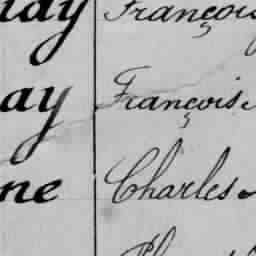 François
ay François
ne Charles